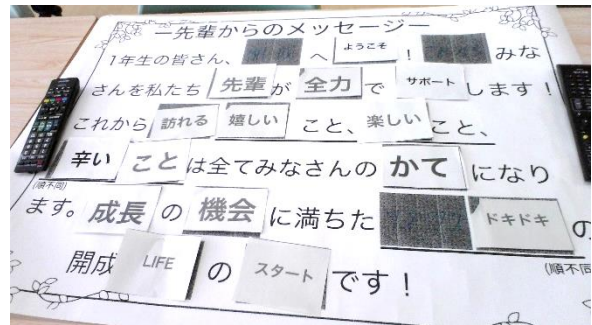 ―先輩からのメッセージ―
1年生の皆さん、へようこそ！みな
さんを私たち先輩が全力でサポートします！
これから訪れる嬉しいこと、楽しいこと、
辛いことは全てみなさんのかてになり
(順不同)
ます。成長の機会に満ちたドキドキの
開成LIFEのスタートです！
(順不同